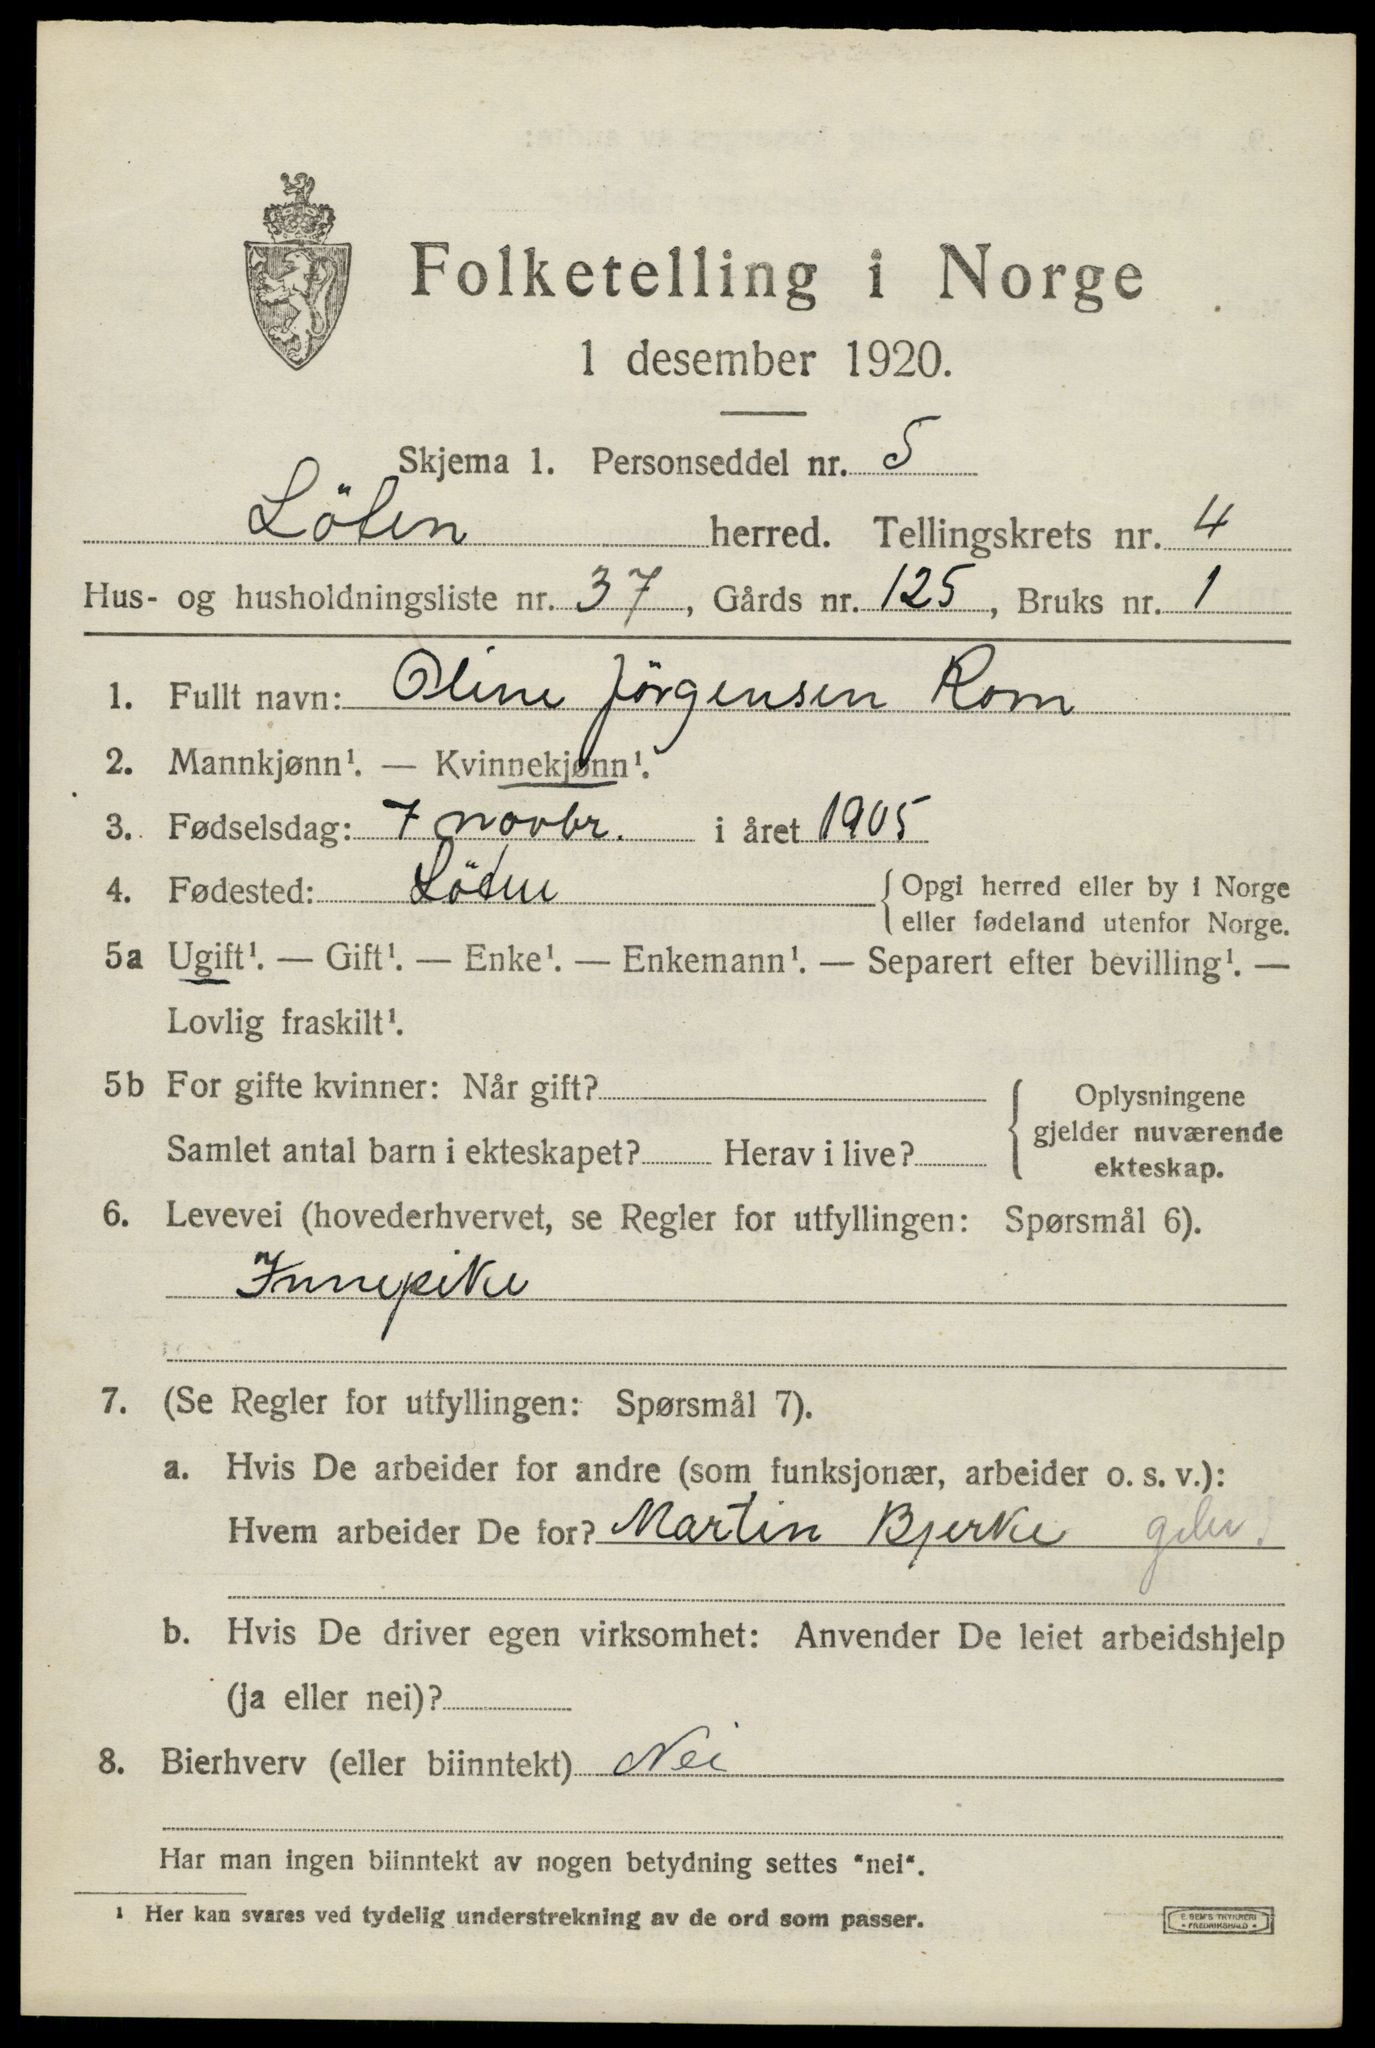 Folketelling i Norge
1 desember 1920.
Skjema 1. Personseddel nr. 5
Löten herred. Tellingskrets nr. 4
Hus- og husholdningsliste nr. 37, Gårds nr. 125, Bruks nr. 1
1. Fullt navn: Oline Jörgensen Rom
2. Mannkjønn¹. — Kvinnekjønn¹.
3. Fødselsdag: 7 novbr. i året 1905
4. Fødested: Löten { Opgi herred eller by i Norge
eller fødeland utenfor Norge.
5a Ugift¹. — Gift¹. — Enke¹. — Enkemann¹. — Separert efter bevilling¹. —
Lovlig fraskilt¹.
5b For gifte kvinner: Når gift? { Oplysningene
gjelder nuværende
Samlet antal barn i ekteskapet? Herav i live?
ekteskap.
6. Levevei (hovederhvervet, se Regler for utfyllingen: Spørsmål 6).
Innepike
7. (Se Regler for utfyllingen: Spørsmål 7).
a. Hvis De arbeider for andre (som funksjonær, arbeider o. s. v.):
Hvem arbeider De for? Martin Bjerke
b. Hvis De driver egen virksomhet: Anvender De leiet arbeidshjelp
(ja eller nei)?
8. Bierhverv (eller biinntekt) Nei
Har man ingen biinntekt av nogen betydning settes "nei".
¹ Her kan svares ved tydelig understrekning av de ord som passer.
E. SEM'S TRYKKERI
• FREDRIKSHALD •